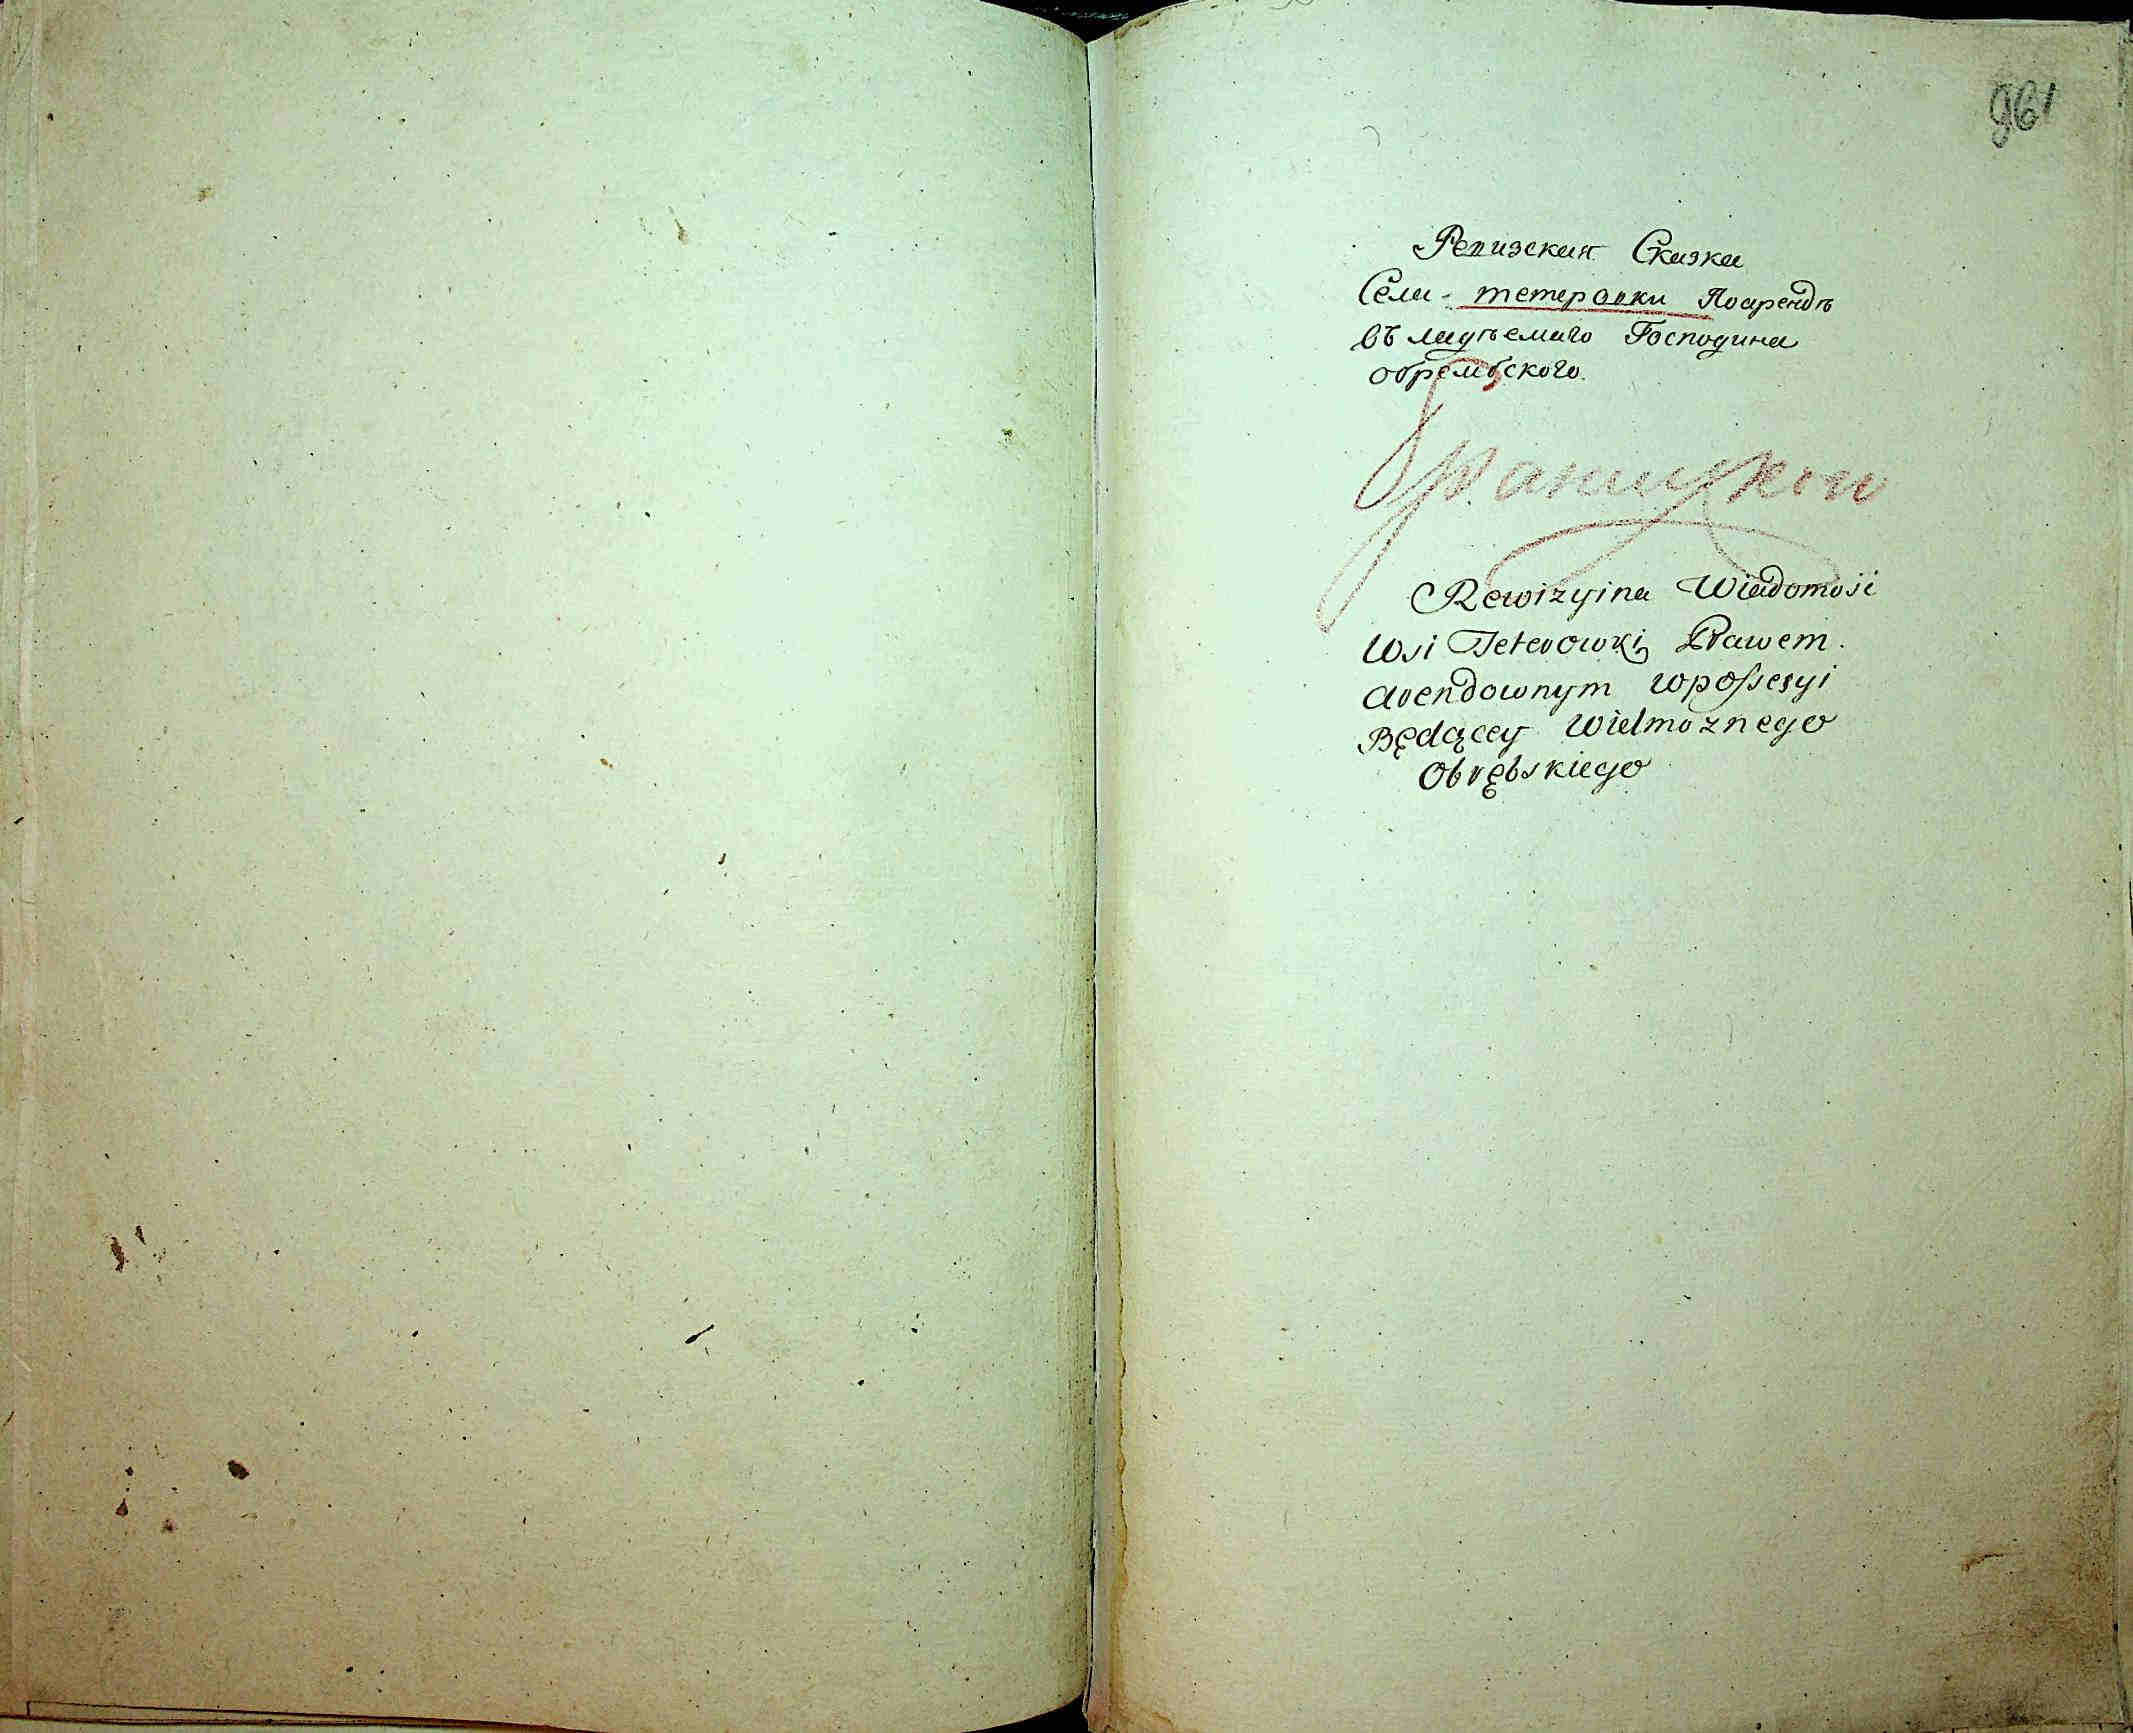 961
Ревизская Сказка
Села - тетеровки Поарендѣ
въ ладѣемаго Господина
обрембского.
Браницкой
Rewizyina Wiadomość
Wsi Teterowki Prawem
arendownym wpossesyi
Będącey Wielmożnego
Obrębskiego